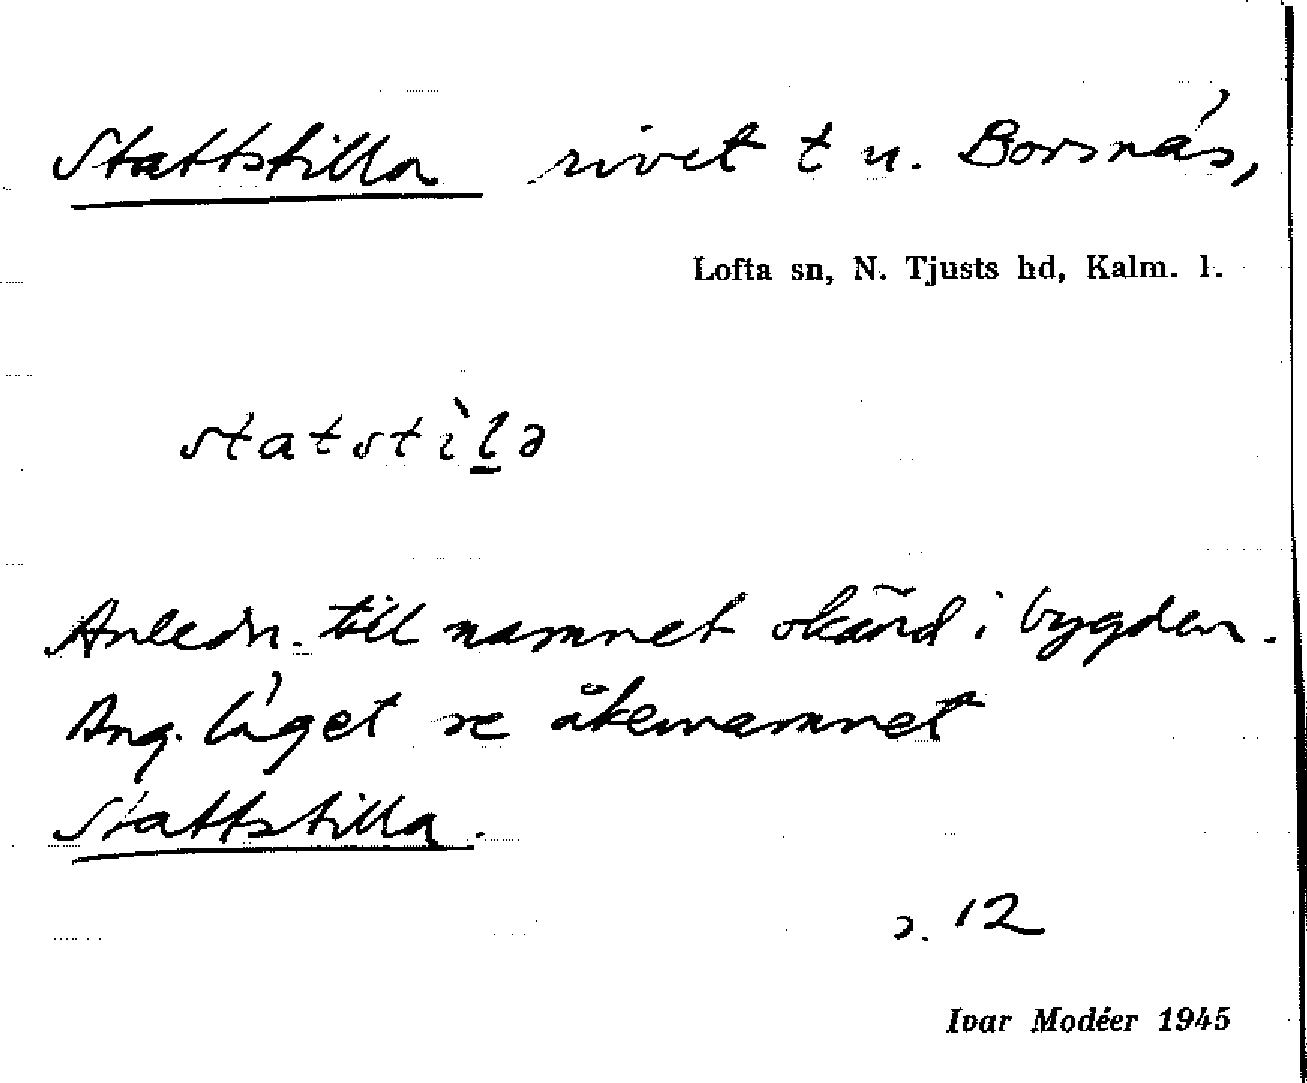 Stattstilla rivet t u. Borsnäs,
Lofta sn, N. Tjusts hd, Kalm. l.
statstìl̲ə
Anledn. till namnet okänd i bygden.
Ang. läget se åkernamnet
Stattstilla.
s. 12
Ivar Modéer 1945